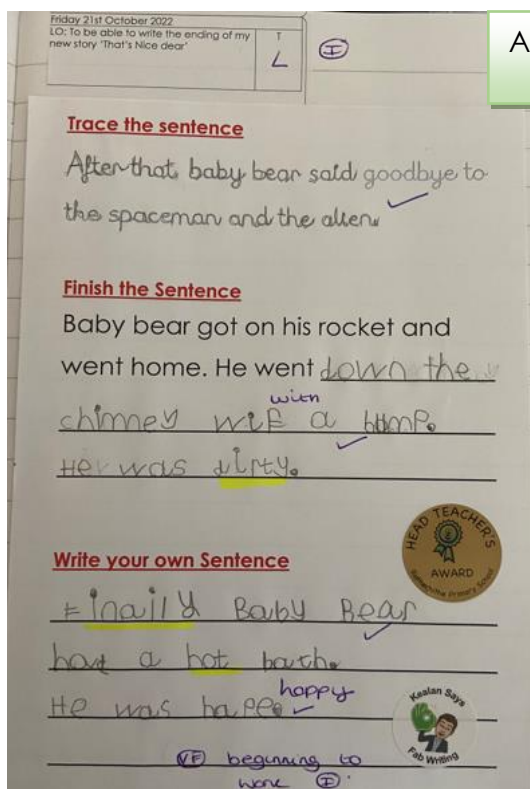 Friday 21st October 2022
LO: To be able to write the ending of my
new story 'That's Nice dear'
T
L
I
A
Trace the sentence
After that, baby bear said goodbye to
the spaceman and the alien.
Finish the Sentence
Baby bear got on his rocket and
went home. He went down the
with
chimney wif a bump.
He was dirty.
HEAD TEACHER'S
AWARD
Primary School
Write your own Sentence
Finaily Baby Bear
had a hot bath.
happy
He was hapee.
Kealan Says
Fab Writing
VF beginning to
work I.